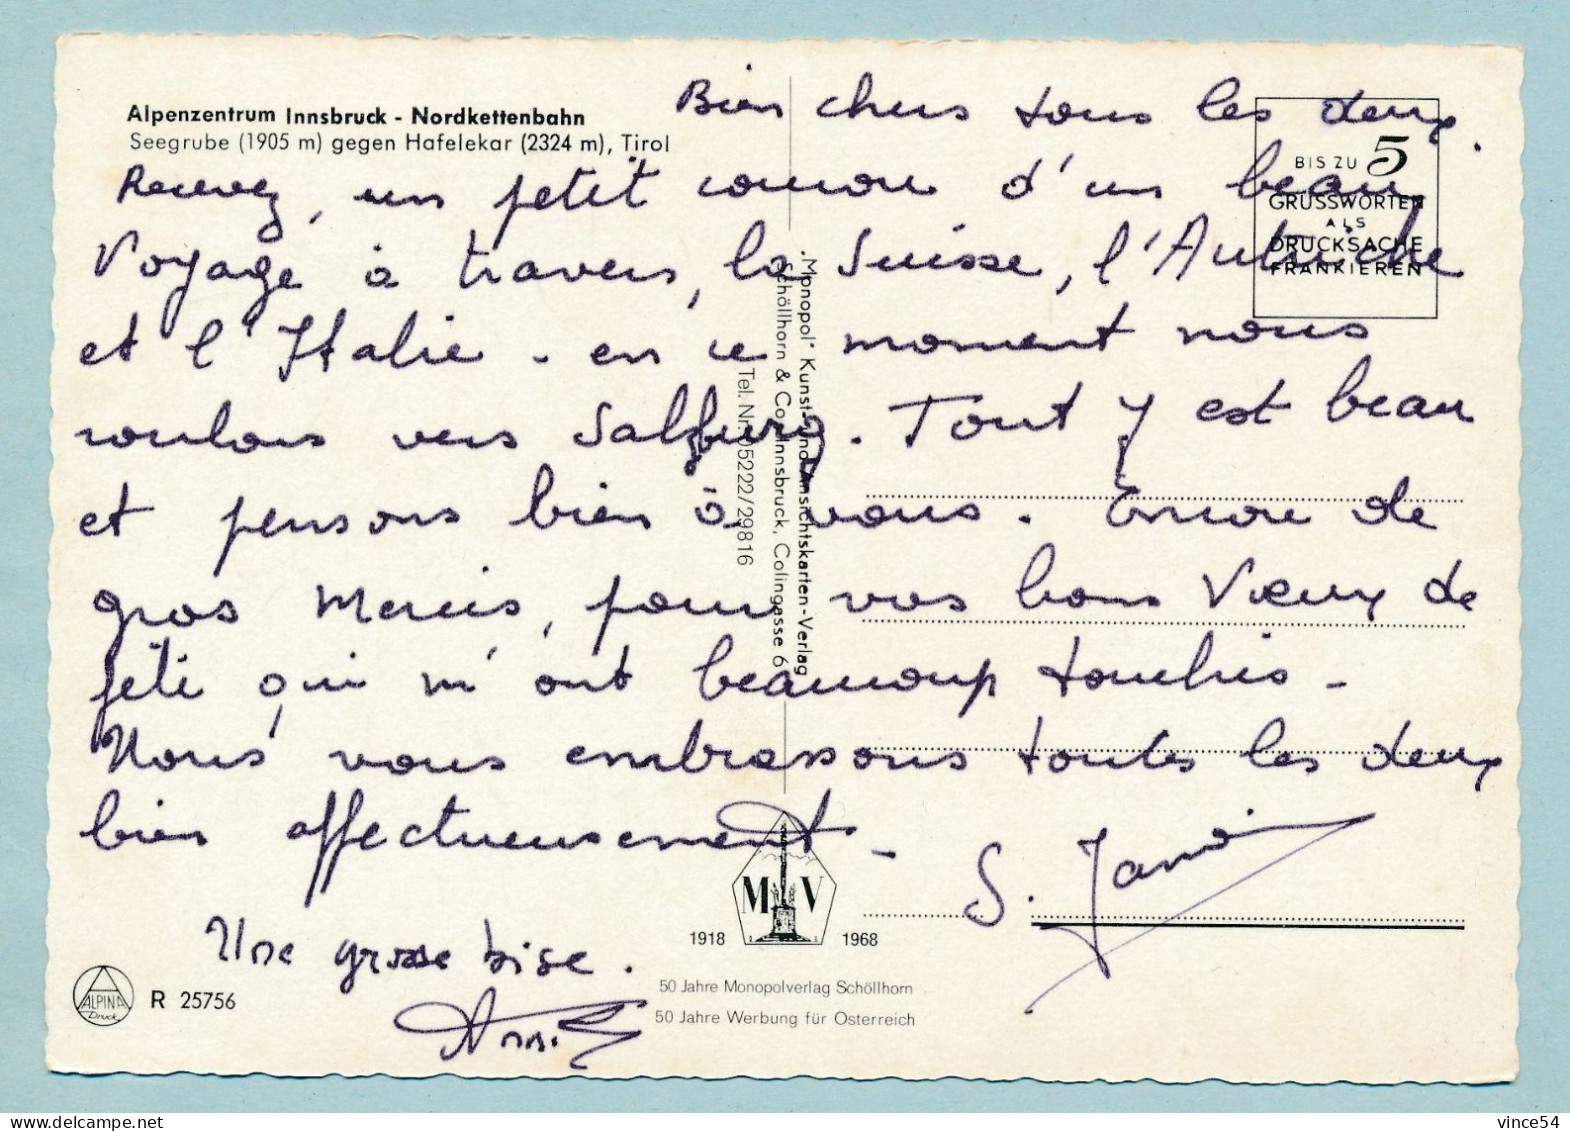 Alpenzentrum Innsbruck - Nordkettenbahn
Seegrube (1905 m) gegen Hafelekar (2324 m), Tirol
Bien chers tous les deux.
Recevez, un petit coucou d'un beau
Voyage à travers, la Suisse, l'Autriche
et l'Italie - en ce moment nous
roulons vers Salzburg. Tout y est beau
et pensons bien à vous. Encore de
gros Mercis, pour vos bons Vœux de
fête qui m'ont beaucoup touchés -
Nous vous embrassons toutes les deux
bien affectueusement -
S.
Une grosse bise.
BIS ZU 5
GRUSSWORTEN
ALS
DRUCKSACHE
FRANKIEREN
"Monopol" Kunst- und Ansichtskarten-Verlag
Schöllhorn & Co., Innsbruck, Colingasse 6
Tel. Nr. 05222/29816
M V
1918 1968
50 Jahre Monopolverlag Schöllhorn
50 Jahre Werbung für Österreich
ALPINA
Druck
R 25756
vince54